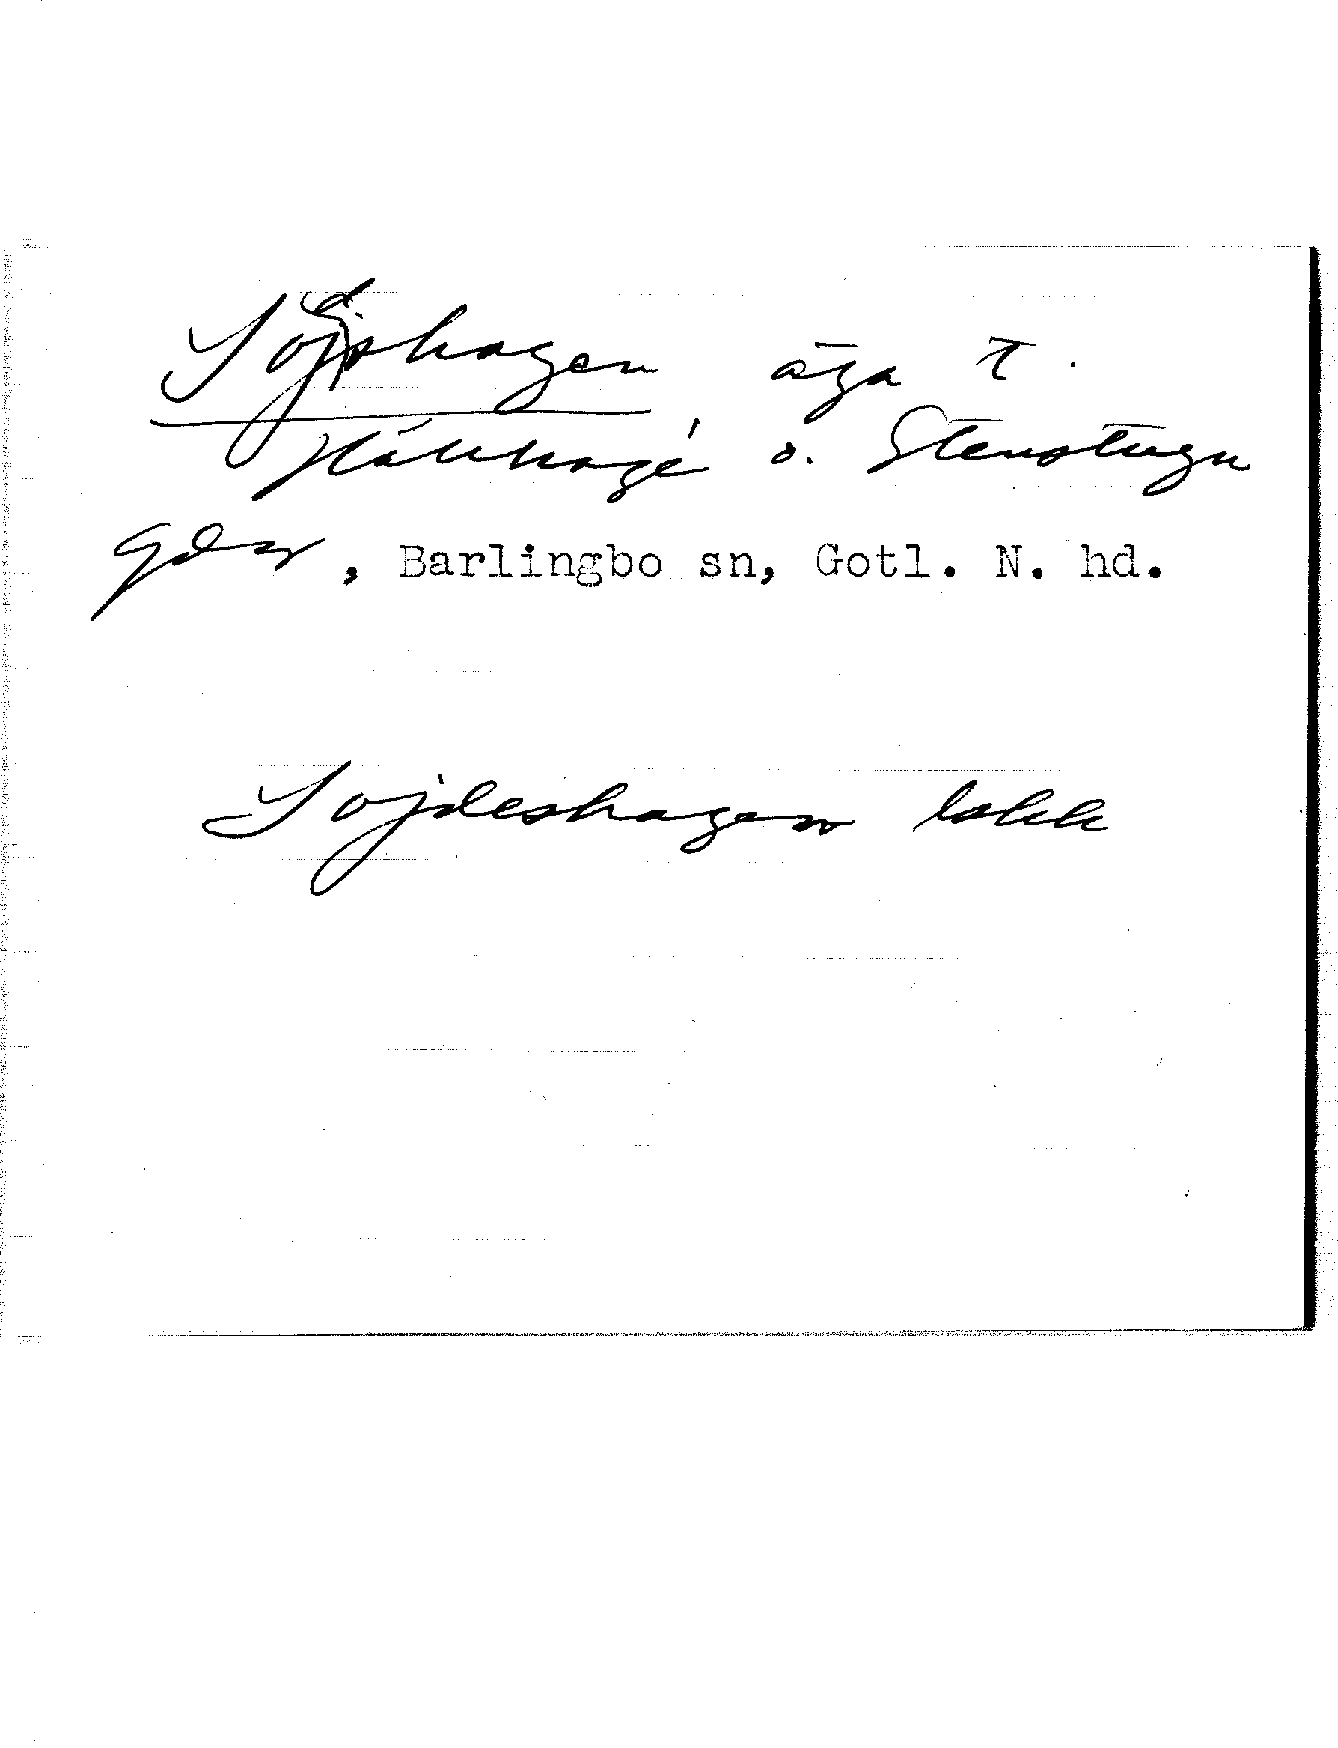 Sojdshagen äga t.
Hällhagé o. Stenstugu
gdar, Barlingbo sn, Gotl. N. hd.
Sojdeshagen lokk